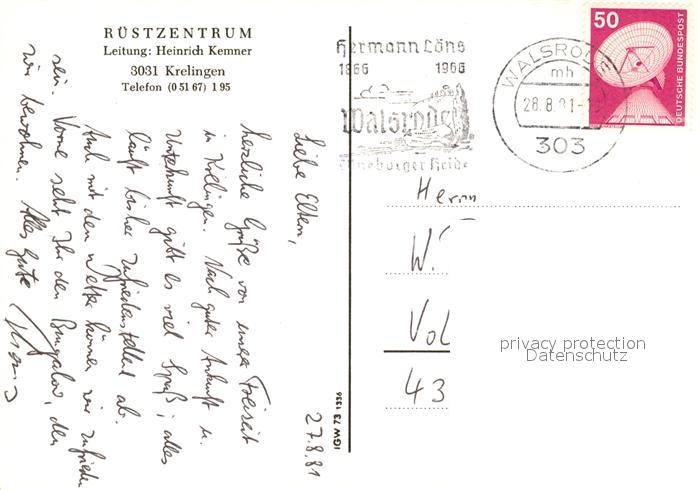 RÜSTZENTRUM
Leitung: Heinrich Kemner
3031 Krelingen
Telefon (0 51 67) 1 95
27.8.81
Liebe Eltern,
herzliche Grüße von unserer Freizeit
in Krelingen. Nach guter Ankunft u.
Unterkunft gibt es viel Spaß; alles
läuft bisher zufriedenstellend ab.
Auch mit dem Wetter können wir zufrieden
sein. Vorne seht Ihr den Bungalow, den
wir bewohnen. Alles Gute
IGW 73 1336
Hermann Löns
1866 1966
Walsrode
Lüneburger Heide
WALSRODE
mh
28.8.81
303
50
DEUTSCHE BUNDESPOST
Herrn
W.
Vol
43
privacy protection
Datenschutz